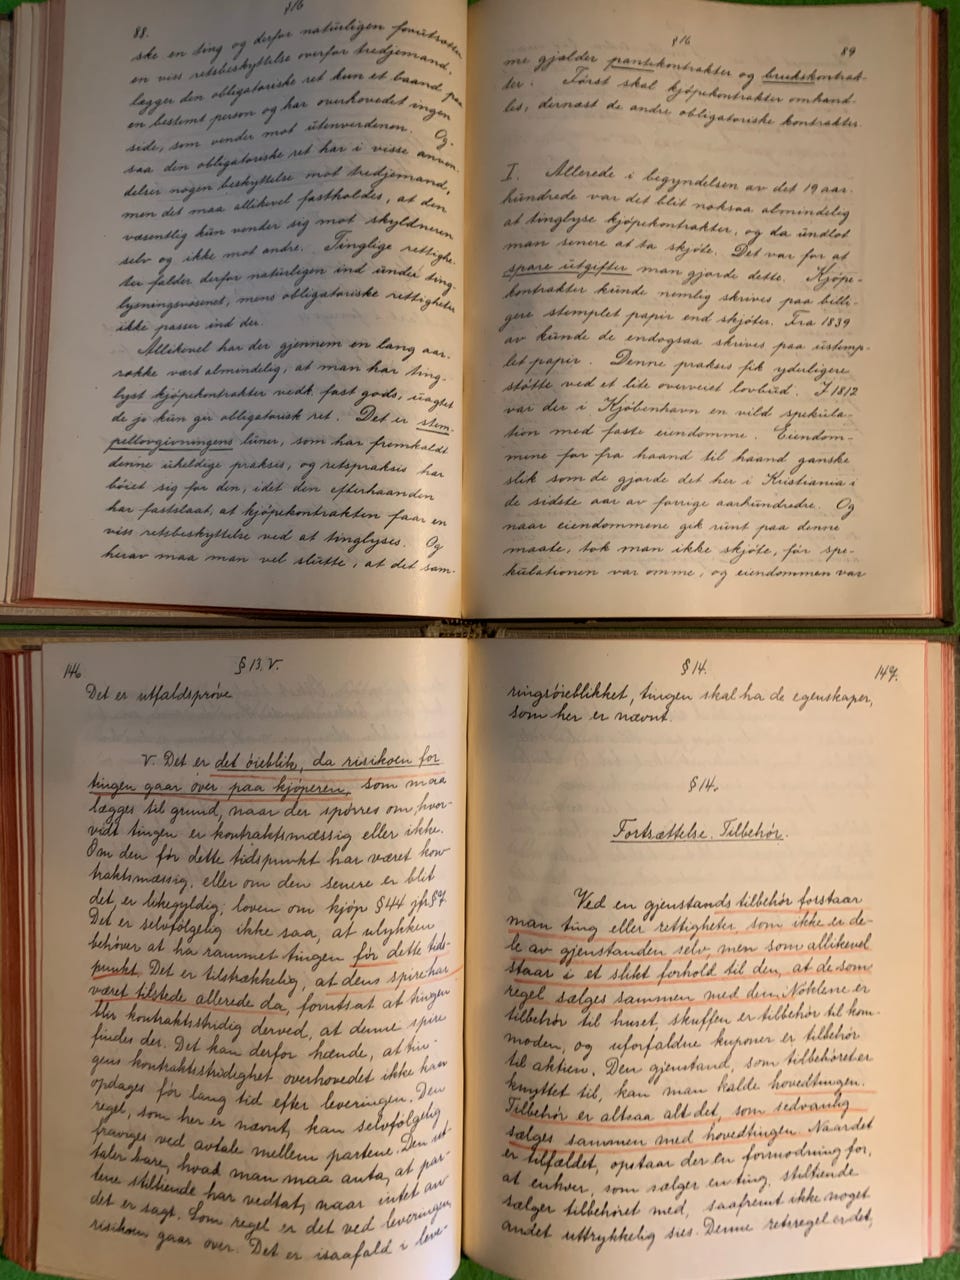 §16
88.
ske en ting og derfor naturligen forutsætter
en viss retsbeskyttelse overfor tredjemand,
lægger den obligatoriske ret kun et baand paa
en bestemt person og har overhovedet ingen
side, som vender mot utenverdenen. Og-
saa den obligatoriske ret har i visse anven-
delser nogen beskyttelse mot tredjemand,
men det maa allikevel fastholdes, at den
væsentlig kun vender sig mot skyldneren
selv og ikke mot andre. Tinglige rettighe-
ter falder derfor naturligen ind under ting-
lysningsvæsenet, mens obligatoriske rettigheter
ikke passer ind der.
Allikevel har der gjennem en lang aar-
række vært almindelig, at man har ting-
lyst kjøpekontrakter vedk. fast gods, uagtet
de jo kun gir obligatorisk ret. Det er stem-
pellovgivningens luner, som har fremkaldt
denne uheldige praksis, og retspraksis har
bøiet sig for den, idet den efterhaanden
har fastslaat, at kjøpekontrakten faar en
viss retsbeskyttelse ved at tinglyses. Og
herav maa man vel slutte, at det sam-
§16
89
me gjælder pantekontrakter og brukskontrak-
ter. Først skal kjøpekontrakter omhand-
les, dernæst de andre obligatoriske kontrakter.
I. Allerede i begyndelsen av det 19 aar-
hundrede var det blit noksaa almindelig
at tinglyse kjøpekontrakter, og da undlot
man senere at ta skjøte. Det var for at
spare utgifter man gjorde dette. Kjøpe-
kontrakter kunde nemlig skrives paa billi-
gere stemplet papir end skjøter. Fra 1839
av kunde de endogsaa skrives paa ustemp-
let papir. Denne praksis fik yderligere
støtte ved et lite overveiet lovbud. I 1812
var der i Kjøbenhavn en vild spekula-
tion med faste eiendomme. Eiendom-
mene for fra haand til haand ganske
slik som de gjorde det her i Kristiania i
de sidste aar av forrige aarhundrede. Og
naar eiendommene gik rundt paa denne
maate, tok man ikke skjøte, før spe-
kulationen var omme, og eiendommen var
146
§ 13. V.
Det er utfaldsprøve.
V. Det er det øieblik, da risikoen for
tingen gaar over paa kjøperen, som maa
lægges til grund, naar der spørres om, hvor-
vidt tingen er kontraktsmæssig eller ikke.
Om den før dette tidspunkt har været kon-
traktsmæssig, eller om den senere er blit
det, er likegyldig; loven om kjøp § 44 jfr. § 7.
Det er selvfølgelig ikke saa, at ulykken
behøver at ha rammet tingen før dette tids-
punkt. Det er tilstrækkelig, at dens spire har
været tilstede allerede da, forutsat at tingen
blir kontraktsstridig derved, at denne spire
findes der. Det kan derfor hænde, at tin-
gens kontraktstridighet overhovedet ikke kan
opdages før lang tid efter leveringen. Den
regel, som her er nævnt, kan selvfølgelig
fraviges ved avtale mellem partene. Den ut-
taler bare, hvad man maa anta, at par-
tene stiltiende har vedtat, naar intet an
det er sagt. Som regel er det ved leveringen,
risikoen gaar over. Det er isaafald i leve-
§ 14.
147.
ringsøieblikket, tingen skal ha de egenskaper,
som her er nævnt.
§ 14.
Fortsættelse. Tilbehør.
Ved en gjenstands tilbehør forstaar
man ting eller rettigheter, som ikke er de-
le av gjenstanden selv, men som allikevel
staar i et slikt forhold til den, at de som
regel sælges sammen med den. Nøklene er
tilbehør til huset, skuffen er tilbehør til kom-
moden, og uforfaldne kuponer er tilbehør
til aktien. Den gjenstand, som tilbehøret er
knyttet til, kan man kalde hovedtingen.
Tilbehør er altsaa alt det, som sedvanlig
sælges sammen med hovedtingen. Naar det
er tilfældet, opstaar der en formodning for,
at enhver, som sælger en ting, stiltiende
sælger tilbehøret med, saafremt ikke noget
andet uttrykkelig sies. Denne retsregel er det,